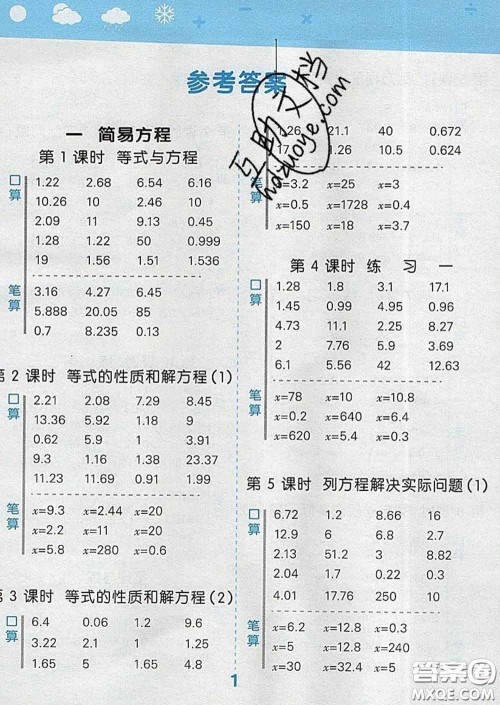 参考答案
一 简易方程
第 1 课时 等式与方程
口算
1.22 2.68 6.54 6.16
10.26 10 2.46 4
2.09 11 9.13 0.45
1.28 1.22 50 0.999
19 1.56 1.51 1.536
笔算
3.16 4.27 6.45
5.888 20.05 85
0.7 8.235 0.13
第 2 课时 等式的性质和解方程(1)
口算
2.21 2.08 7.29 8.45
13.36 5.92 9 1.98
0.62 5.9 1 4
0.39 13.8 4.44 23.33
11.23 11.69 0.91 1.96
笔算
x=9.3 x=2.44 x=20
x=2.2 x=11 x=20
x=5.8 x=280 x=0.6
第 3 课时 等式的性质和解方程(2)
口算
6.4 0.06 1.2 9.6
3.22 2.1 1 1
1.65 5 1.65 4.8
1.26 21.1 40 0.672
1.26 10.5 0.624
笔算
x=3.2 x=25 x=3
x=0.5 x=1728 x=0.4
x=150 x=18 x=3.7
第 4 课时 练 习 一
口算
1.28 1.8 3.1 17.1
1.45 0.99 4.95 0.96
4.73 11 2.25 8.27
2 7.76 5.39 3.9
6.1 5.56 42 12.63
笔算
x=78 x=10 x=10.8
x=0.2 x=640 x=6.4
x=620 x=5.4 x=0.3
第 5 课时 列方程解决实际问题(1)
口算
6.72 1.2 8.66 16
12.9 6 6.8 2.7
2.13 51.2 3 8.82
2.04 1.7 0.22 1
4.01 17.76 250 10
笔算
x=6.2 x=12.8 x=0.3
x=5 x=12.8 x=240
x=30 x=32.4 x=5
1
互助文档
hdzuoye.com
答案圈
MXQE.COM